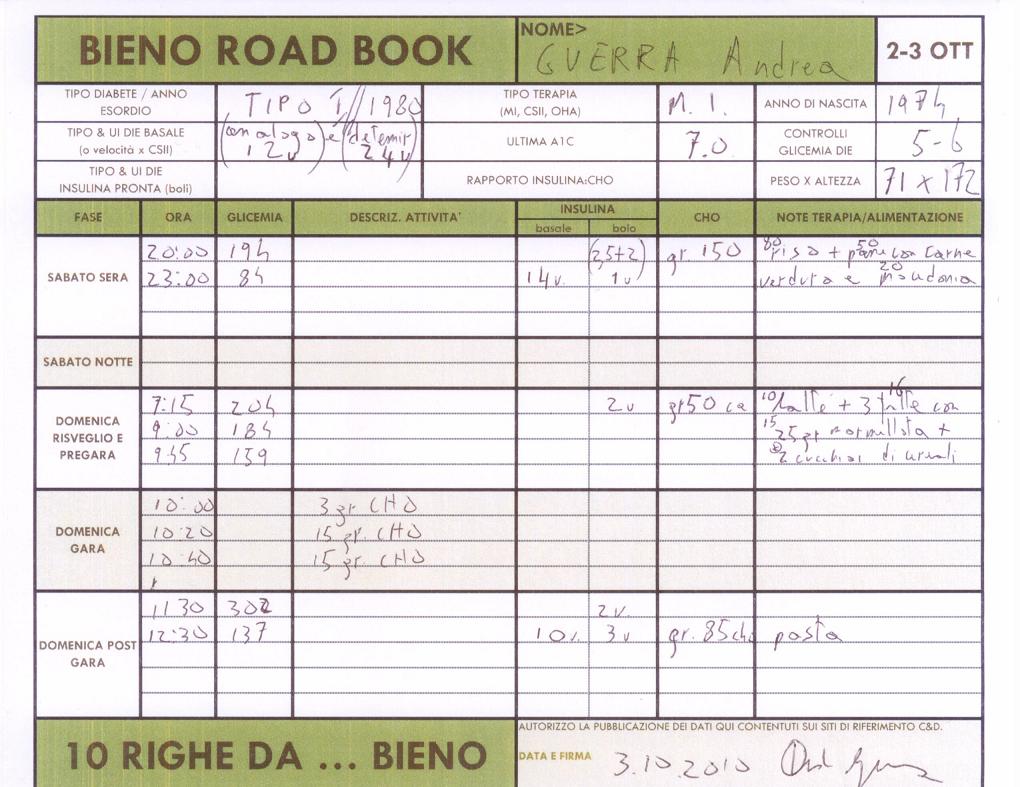 BIENO ROAD BOOK
NOME> GUERRA Andrea
2-3 OTT
TIPO DIABETE / ANNO ESORDIO TIPO I / 1980
TIPO TERAPIA (MI, CSII, OHA) M. I.
ANNO DI NASCITA 1974
TIPO & UI DIE BASALE (o velocità x CSII) (analogo) e (detemir
12u 24u)
ULTIMA A1C 7.0
CONTROLLI GLICEMIA DIE 5-6
TIPO & UI DIE INSULINA PRONTA (boli)
RAPPORTO INSULINA:CHO
PESO X ALTEZZA 71 x 172
FASE ORA GLICEMIA DESCRIZ. ATTIVITA' INSULINA CHO NOTE TERAPIA/ALIMENTAZIONE
basale bolo
SABATO SERA
20:00 194 (3,5+2) gr. 150 80 riso + 50 pane con carne
23:00 84 14u. 1u verdura e 20
SABATO NOTTE
DOMENICA RISVEGLIO E PREGARA
7:15 204 2u gr 50 ca 10 latte + 3 fette con 16
9:00 184 15 25 gr +
9 45 159 2 cucchiai di cereali
DOMENICA GARA
10:00 3 gr. CHO
10:20 15 gr. CHO
10:40 15 gr. CHO
DOMENICA POST GARA
11 30 302 2u.
12:30 137 10u. 3u gr. 85 cho pasta
10 RIGHE DA ... BIENO
AUTORIZZO LA PUBBLICAZIONE DEI DATI QUI CONTENTUTI SUI SITI DI RIFERIMENTO C&D.
DATA E FIRMA 3.10.2010